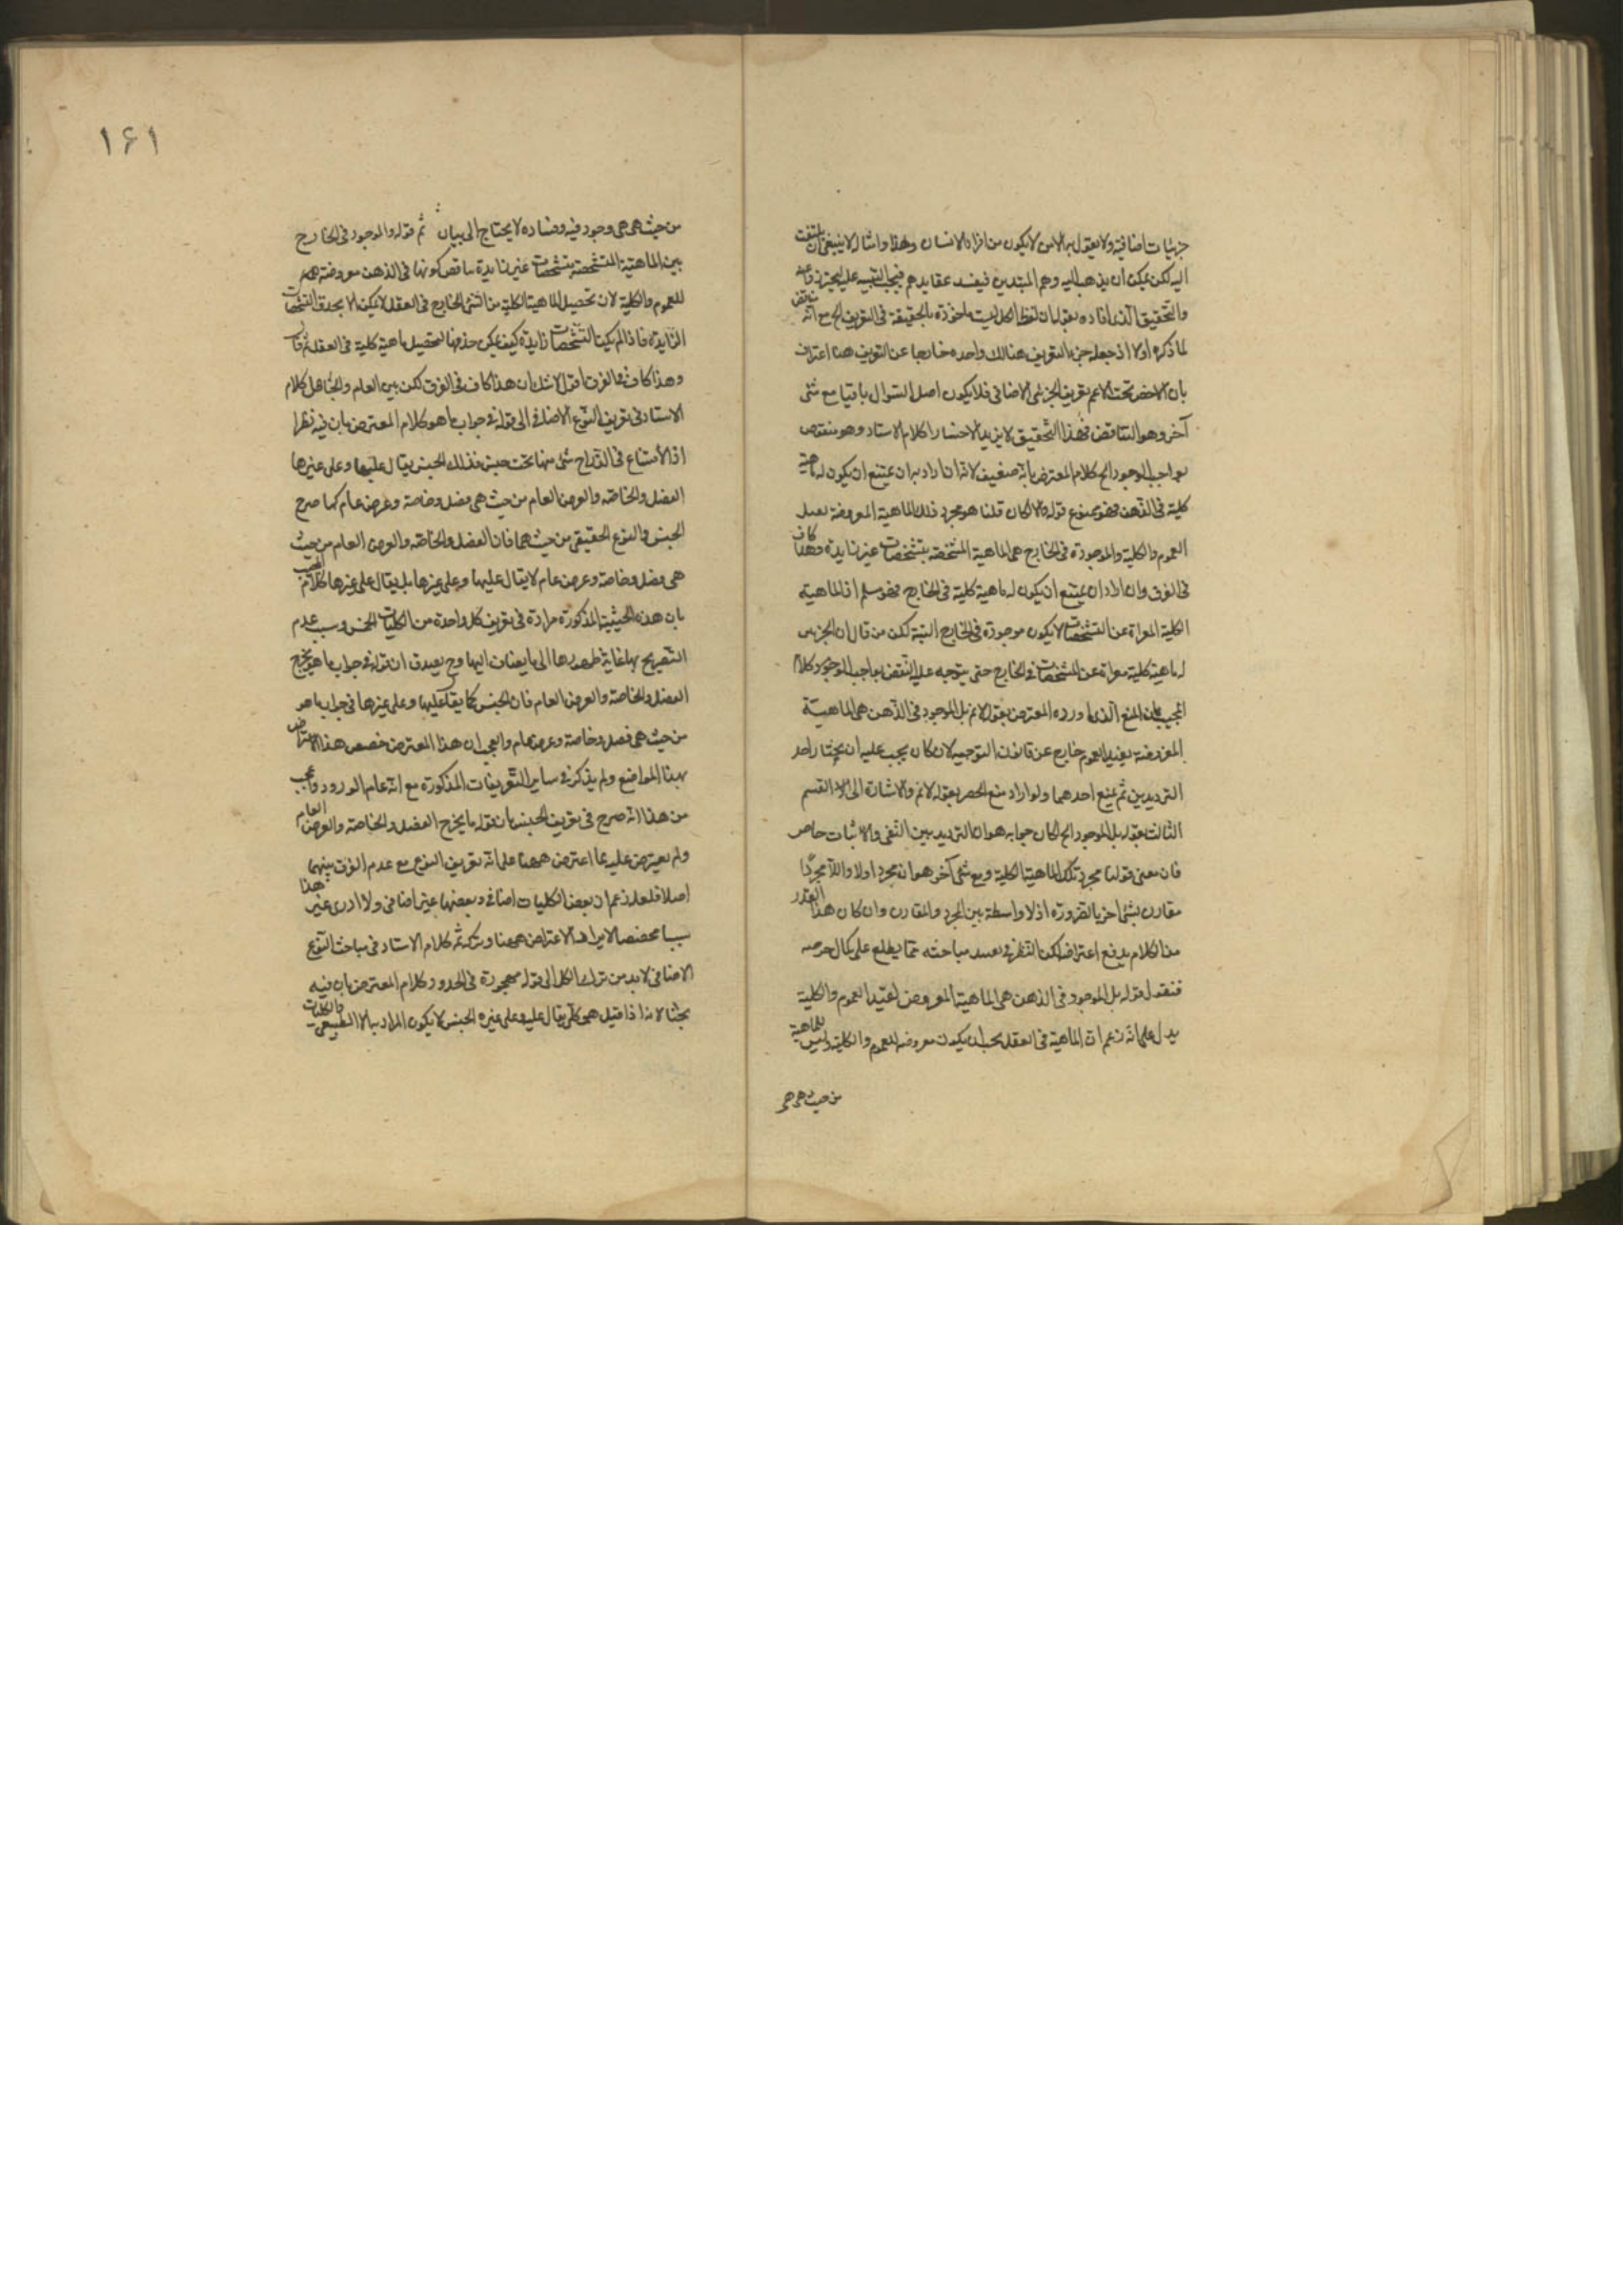 جزئيات اضافية ولا يقول به الامن لا يكون من افراد الانسان وهذا وامثاله لا ينبغي ان يلتفت
اليه لكن يمكن ان يذهب اليه وهم المبتدين فيفسد عقايدهم فيجب التنبيه عليه ليحترز عنه
والتحقيق الذي افاده بقوله ان لفظ الكل ليست ماخوذة بالحقيقة في التعريف الخ مع انه مناقض
لما ذكره اولا اذ جعله جزء التعريف هنالك واحده خارجا عن التعريف هنا اعتراف
بان الاخص تحت الاعم تعريف الجزئي الاضافي فلا يكون اصل السؤال باقيا مع شئ
آخر وهو التناقض فهذا التحقيق لا يزيد الا كلام الاستاد وهو منقوض
بواجب الوجود الخ كلام المعترض بانه ضعيف لانه ان اراد به ان يمتنع ان يكون له ماهية
كلية في الذهن فهو ممنوع قوله والا لكان قلنا هو مجرد ذلك الماهية المعروضة بعبد
العموم والكلية والموجودة في الخارج هي الماهية المتشخصة بتشخصات غير زايدة وهذا كاف
في الفرق وان اراد ان يمتنع ان يكون له ماهية كلية في الخارج فهو مسلم اذ الماهية
الكلية المعراة عن التشخصات لا يكون موجودة في الخارج البتة لكن من قال ان الجزئي
له ماهية كلية معراة عن المشخصات في الخارج حتى يتوجه عليه النقض بواجب الوجود كلام
المجيب بان المنع الذي اورده المعترض بقوله لانم بل الموجود في الذهن هي الماهية
المعروضة بقيد العموم خارج عن قانون التوجيه لان كان يجب عليه ان يختار احد
الترديدين ثم يمنع احدهما ولو اراد منع الحصر بقوله لانم والاشارة الى القسم
الثالث بقوله بل الموجود الخ لكان جوابه هو ان الترديد بين النفي والاثبات حاصر
فان معنى قولنا مجرد تلك الماهية الكلية ومع شئ آخر هو انه مجرد اولا واللا مجرد
مقارن بشئ آخر بالضرورة اذ لا واسطة بين المجرد والمقارن وان كان هذا القدر
من الكلام يدفع اعتراضه لكن النظر في مباحثه مما يطلع على كمال حرصه
فنقول قوله بل الموجود في الذهن هي الماهية المعروض لقيد العموم والكلية
يدل على انه زعم ان الماهية في العقل يجب ان يكون معروضة للعموم والكلية وليس للماهية
من حيث هي هي
١٤١
من حيث هي هي وجود فيه وفساده لا يحتاج الى بيان ثم قوله والموجود في الخارج
بين الماهية المتشخصة بتشخصات غير زايدة يناقض كونها في الذهن معروضة
للعموم والكلية لان تحصيل الماهية الكلية من الشئ الخارج في العقل لا يمكن الا بحذف التشخصات
الزايدة فاذا لم يكن التشخصات زايدة كيف يمكن حذفها لتحصيل ماهية كلية في العقل ثم قال
وهذا كاف في الفرق اقول لا شك ان هذا كاف في الفرق لكن بين العام والجاهل كلام
الاستاد في تعريف النوع الاضافي الى قوله في جواب ما هو كلام المعترض بان فيه نظرا
اذ لا امتناع في اندراج شئ منها تحت جنس فذلك الجنس يقال عليها وعلى غيرها
الفصل والخاصة والعرض العام من حيث هي فصل وخاصة وعرض عام كما صرح
الجنس والنوع الحقيقي من حيث هما فان الفصل والخاصة والعرض العام من حيث
هي فصل وخاصة وعرض عام لا يقال عليها وعلى غيرها بل يقال على غيرها كلام المجيب
بان هذه الحيثية المذكورة مرادة في تعريف كل واحدة من الكليات الخمس وسبب عدم
التصريح بها غاية ظهورها الى ما يضاف اليها وح يصدق ان قوله في جواب ما هو يخرج
الفصل والخاصة والعرض العام فان الجنس كما يقال عليها وعلى غيرها في جواب ما هو
من حيث هي فصل وخاصة وعرض عام والعجب ان هذا المعترض خصص هذا الاعتراض
بهذا المواضع ولم يذكر في ساير التعريفات المذكورة مع انه عام الورود واعجب
من هذا انه صرح في تعريف الجنس بان قوله ما يخرج الفصل والخاصة والعرض العام
ولم يعترض عليه بما اعترض ههنا على انه تعريف النوع مع عدم الفرق بينهما
اصلا فلعله زعم ان بعض الكليات اضافي وبعضها غير اضافي ولا ادرى غير هذا
سببا مخصصا لايراد الاعتراض ههنا وتركه ثم كلام الاستاد في مباحث النوع
الاضافي لا بد من ترك الكل الى قوله مهجورة في الحدود كلام المعترض بان فيه
بحثا لانه اذا قيل هي كلي يقال عليه وعلى غيره الجنس لا يكون المراد به الا الطبيعي والكليات